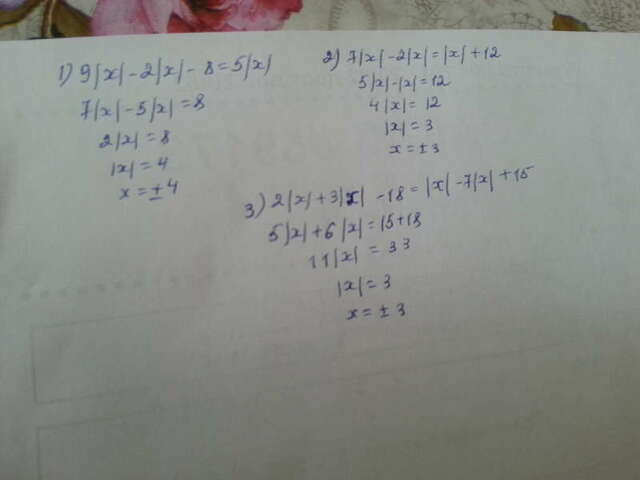 1) 9|x| - 2|x| - 8 = 5|x|
7|x| - 5|x| = 8
2|x| = 8
|x| = 4
x = ± 4
2) 7|x| - 2|x| = |x| + 12
5|x| - |x| = 12
4|x| = 12
|x| = 3
x = ± 3
3) 2|x| + 3|x| - 18 = |x| - 7|x| + 15
5|x| + 6|x| = 15 + 18
11|x| = 33
|x| = 3
x = ± 3